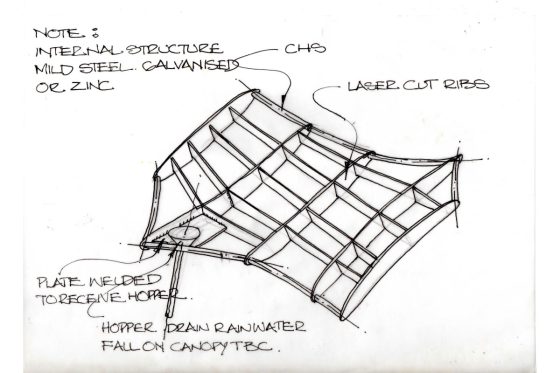 NOTE :
INTERNAL STRUCTURE
MILD STEEL. GALVANISED
OR ZINC
CHS
LASER CUT RIBS
PLATE WELDED
TO RECEIVE HOPPER.
HOPPER DRAIN RAINWATER
FALL ON CANOPY TBC.